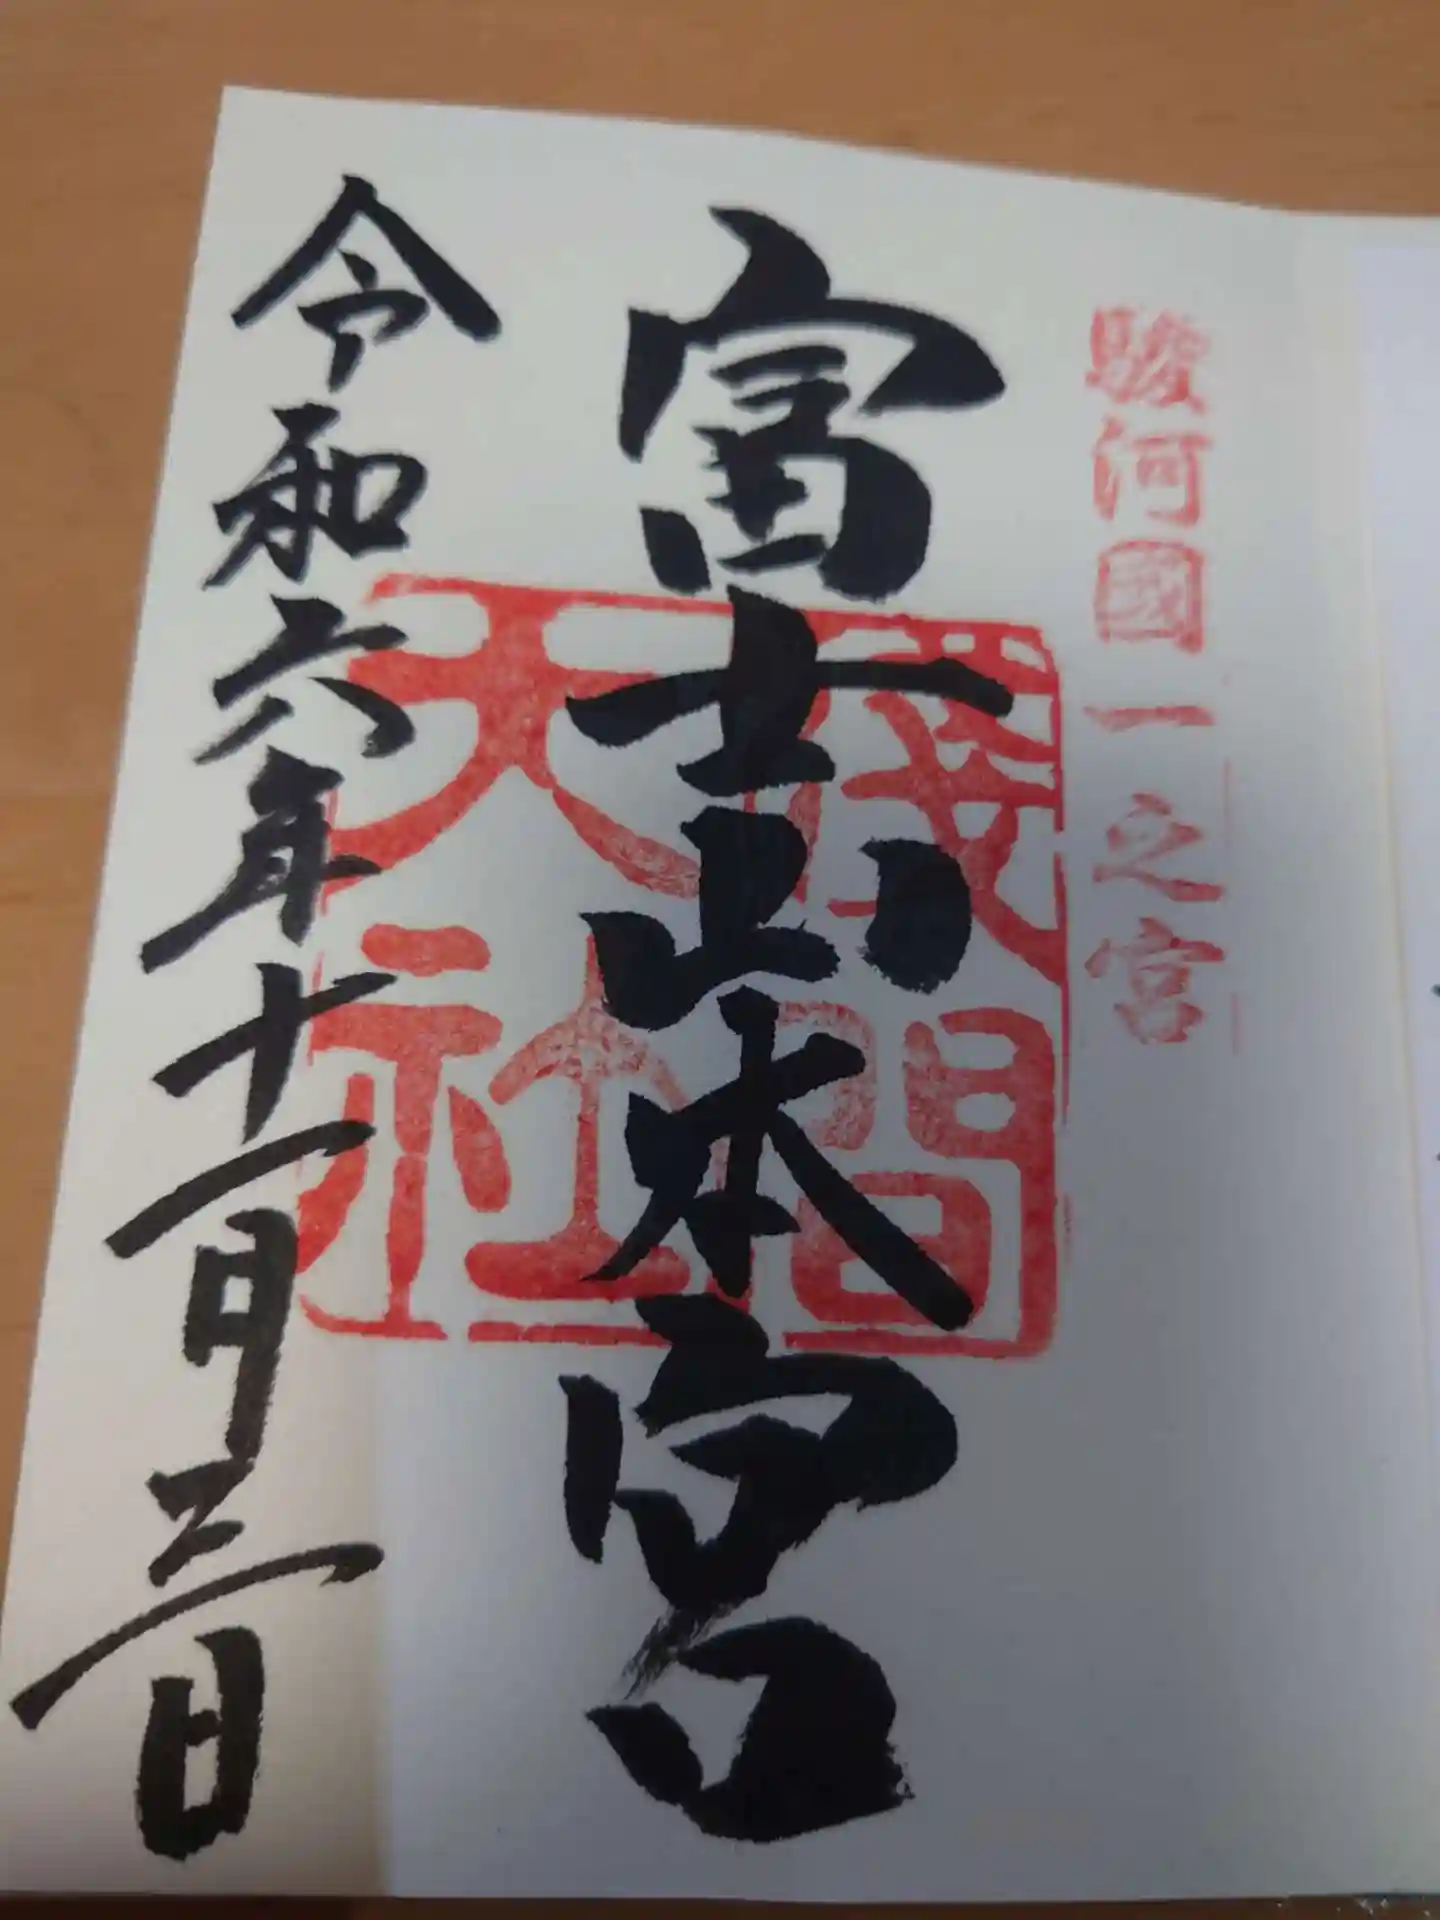 駿河國一之宮
富士山本宮
淺間大社
令和六年十一月三日